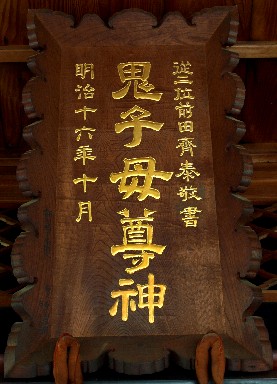 従三位前田齊泰敬書
鬼子母尊神
明治十六年十月